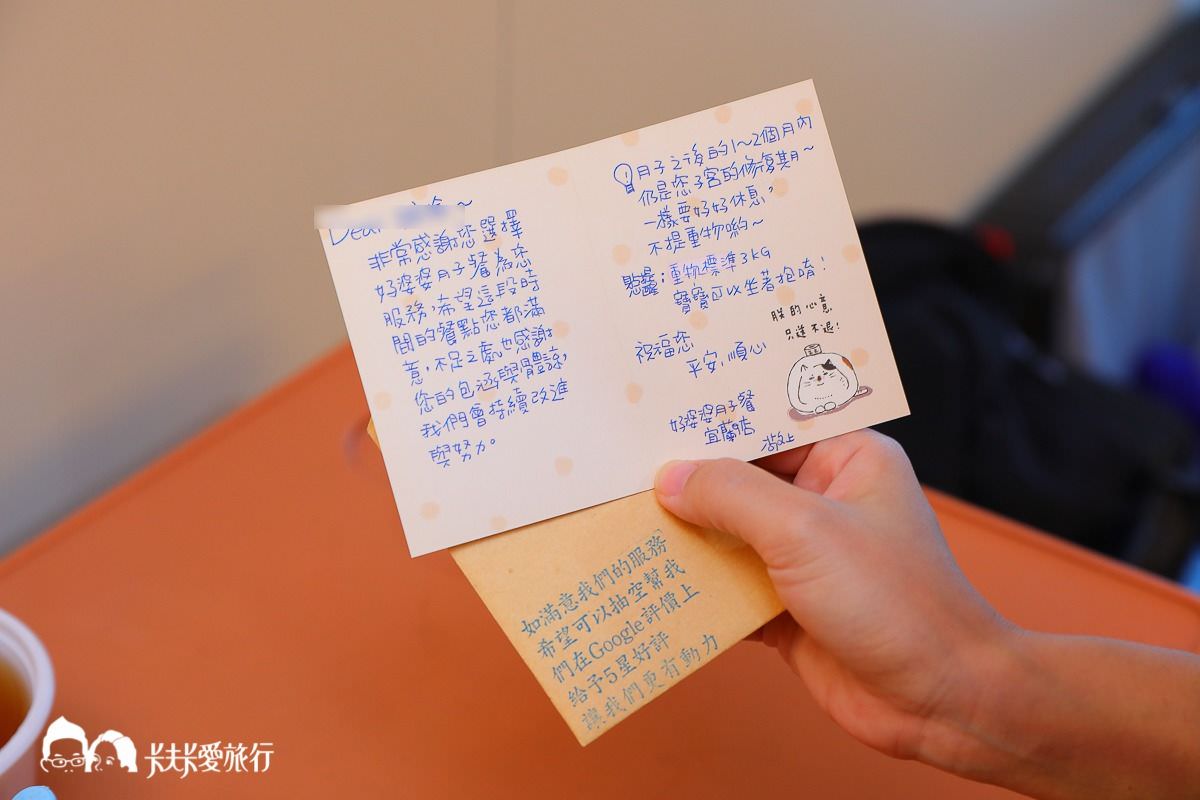 Dear
非常感謝您選擇
好婆婆月子餐為您
服務,希望這段時
間的餐點您都滿
意,不足之處也感謝
您的包涵與體諒,
我們會持續改進
與努力。
月子之後的1~2個月內
仍是您子宮的修復期~
一樣要好好休息,
不提重物喲~
重物標準3KG
寶寶可以坐著抱唷!
朕的心意
只送不退!
祝福您
平安、順心
好婆婆月子餐
宜蘭店
敬上
如滿意我們的服務
希望可以抽空幫我
們在Google評價上
給予5星好評
讓我們更有動力
卡夫卡愛旅行